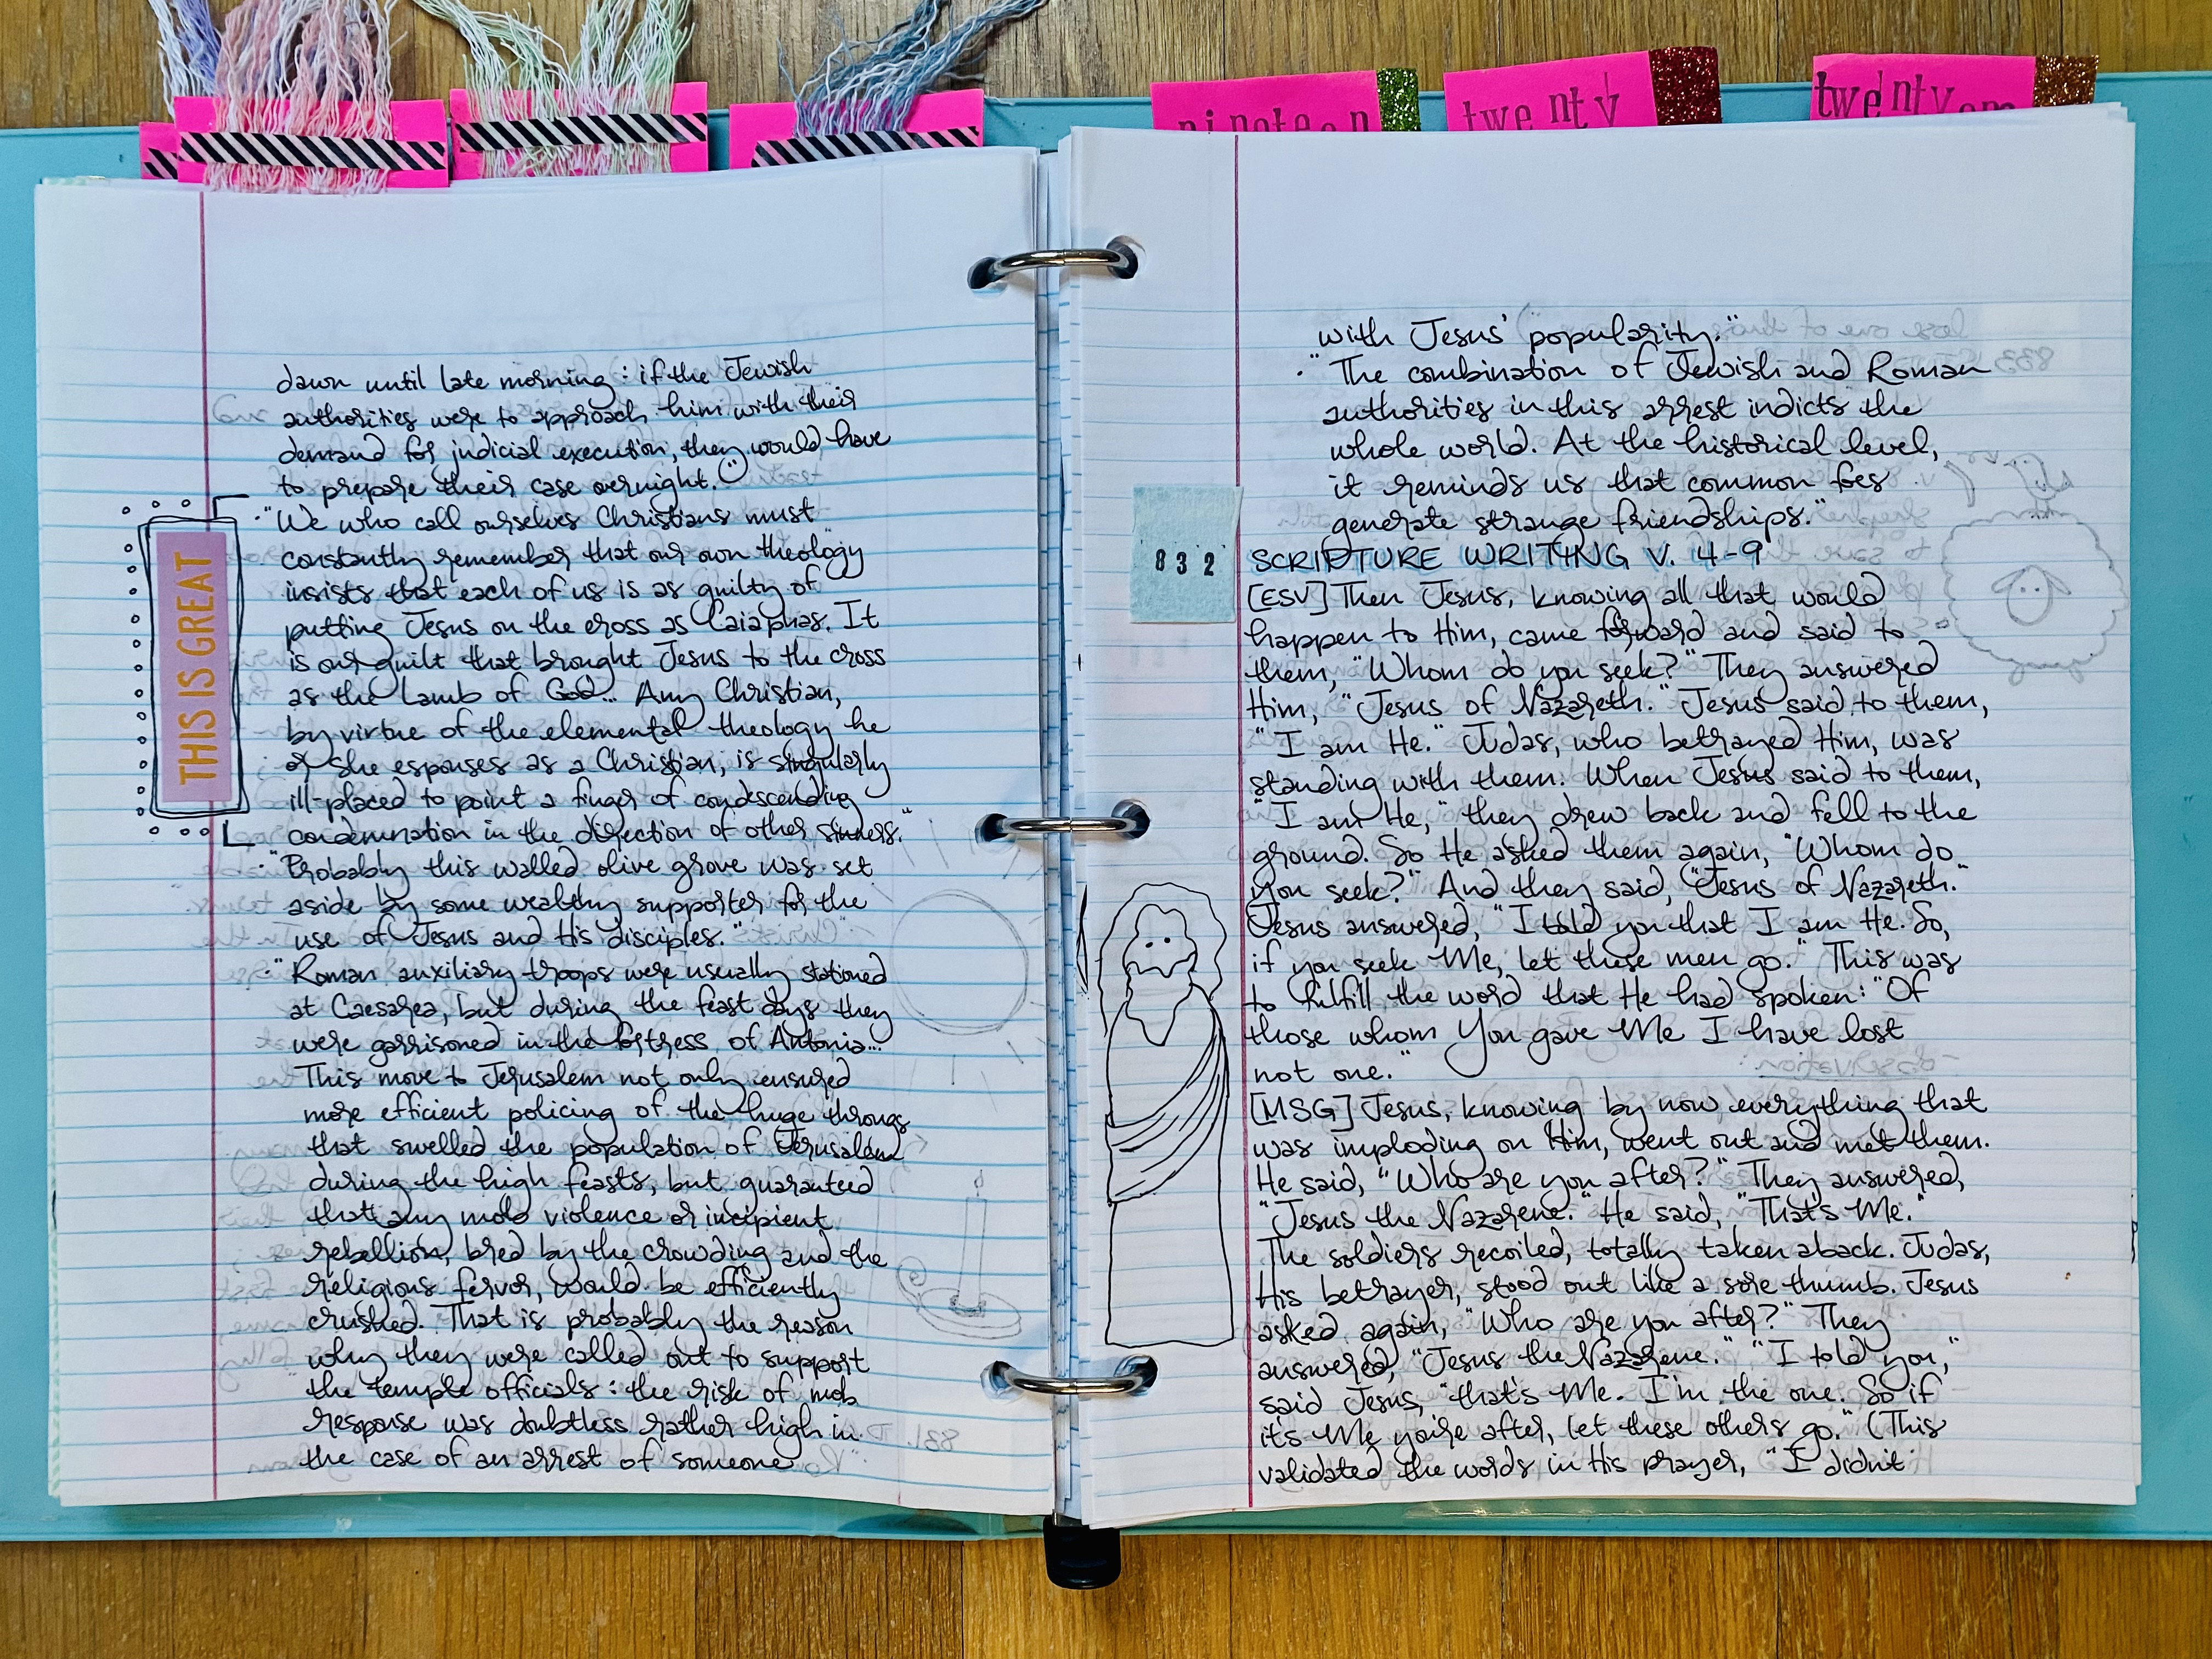 nineteen
twenty
twenty one
dawn until late morning: if the Jewish
authorities were to approach him with their
demand for judicial execution, they would have
to prepare their case overnight."
"We who call ourselves Christians must
constantly remember that our own theology
insists that each of us is as guilty of
putting Jesus on the cross as Caiaphas. It
is our guilt that brought Jesus to the cross
as the Lamb of God... Any Christian,
by virtue of the elemental theology he
or she espouses as a Christian, is singularly
ill-placed to point a finger of condescending
condemnation in the direction of other sinners."
THIS IS GREAT
"Probably this walled olive grove was set
aside by some wealthy supporter for the
use of Jesus and His disciples."
"Roman auxiliary troops were usually stationed
at Caesarea, but during the feast days they
were garrisoned in the fortress of Antonia...
This move to Jerusalem not only ensured
more efficient policing of the huge throngs
that swelled the population of Jerusalem
during the high feasts, but guaranteed
that any mob violence or incipient
rebellion, bred by the crowding and the
religious fervor, would be efficiently
crushed. That is probably the reason
why they were called out to support
the temple officials: the risk of mob
response was doubtless rather high in
the case of an arrest of someone
with Jesus' popularity."
"The combination of Jewish and Roman
authorities in this arrest indicts the
whole world. At the historical level,
it reminds us that common foes
generate strange friendships."
832
SCRIPTURE WRITING V. 4-9
[ESV] Then Jesus, knowing all that would
happen to Him, came forward and said to
them, "Whom do you seek?" They answered
Him, "Jesus of Nazareth." Jesus said to them,
"I am He." Judas, who betrayed Him, was
standing with them. When Jesus said to them,
"I am He," they drew back and fell to the
ground. So He asked them again, "Whom do
you seek?" And they said, "Jesus of Nazareth."
Jesus answered, "I told you that I am He. So,
if you seek Me, let these men go." This was
to fulfill the word that He had spoken: "Of
those whom You gave Me I have lost
not one."
[MSG] Jesus, knowing by now everything that
was imploding on Him, went out and met them.
He said, "Who are you after?" They answered,
"Jesus the Nazarene." He said, "That's Me."
The soldiers recoiled, totally taken aback. Judas,
His betrayer, stood out like a sore thumb. Jesus
asked again, "Who are you after?" They
answered, "Jesus the Nazarene." "I told you,"
said Jesus, "that's Me. I'm the one. So if
it's Me you're after, let these others go." (This
validated the words in His prayer, "I didn't